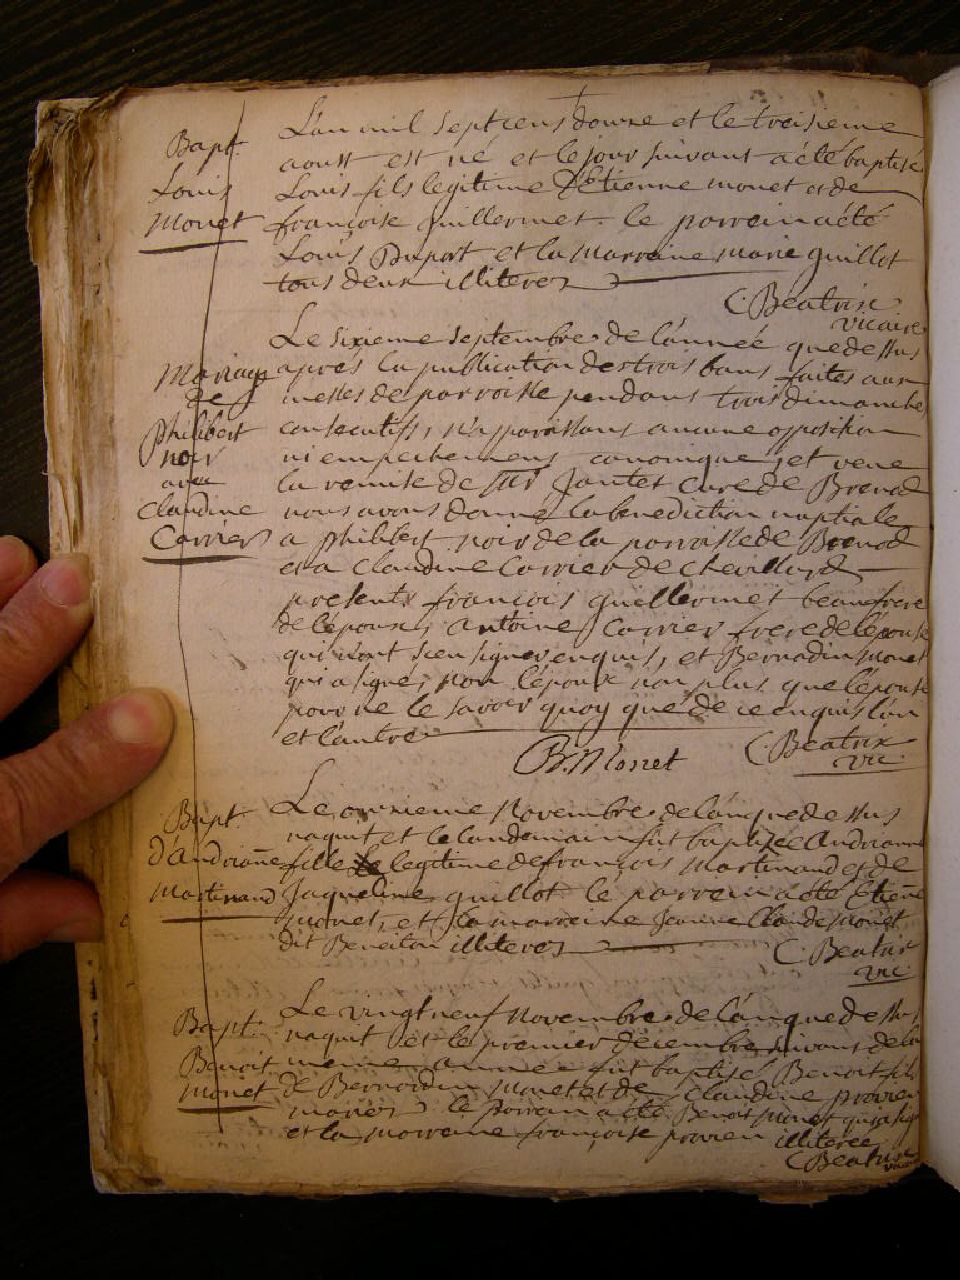 L'an mil sept cens douze et le troisieme
Bapt.
aoust est né et le jour suivant a été baptisé
Louis
Louis fils legitime d'Etienne monet et de
Monet
françoise guillermet le parrein a été
Louis Duport et la marraine marie guillot
tous deux illiteres
C Beatrix
vicaire
Le sixieme septembre de l'année que dessus
Mariage
apres la publication des trois bans faites aux
de
messes de parroisse pendant trois dimanches
philibert
consecutifs, n'apparoissans aucune opposition
noir
ni empechemens canonique, et veue
avec
la remise de Jantet Curé de Brenod
Claudine
nous avons donné la benediction nuptiale
Carrier
a philibert noir de la parroisse de Brenod
et a Claudine Carrier de chevillard
presents françois guillermet beaufrere
de l'epoux, Antoine Carrier frere de l'épouse
qui n'ont sceu signer enquis, et Bernardin Monet
qui a signé, non l'époux non plus que l'épouse
pour ne le savoir quoy que de ce enquis l'un
et l'autre
B. Monet
C. Beatrix
vic.
Le onzieme Novembre de l'an que dessus
Bapt.
naquit et le landemain fut baptizée Andrianne
d'Andrianne
fille legitime de françois Martinand et de
Martinand
Jaqueline guillot le parrein a été Etiene
monet, et la marreine Jeanne Claude Monet
dit Beneiton illiteres
C. Beatrix
vic.
Le vingt neuf Novembre de l'an que dessus
Bapt.
naquit et le premier decembre suivant de la
Benoit
meme année fut baptisé Benoit fils
monet
de Bernardin monet et de Claudine provien
mariés le parrein a été Benoit Monet qui a signé
et la marreine françoise provien illiteree
C Beatrix
vicaire